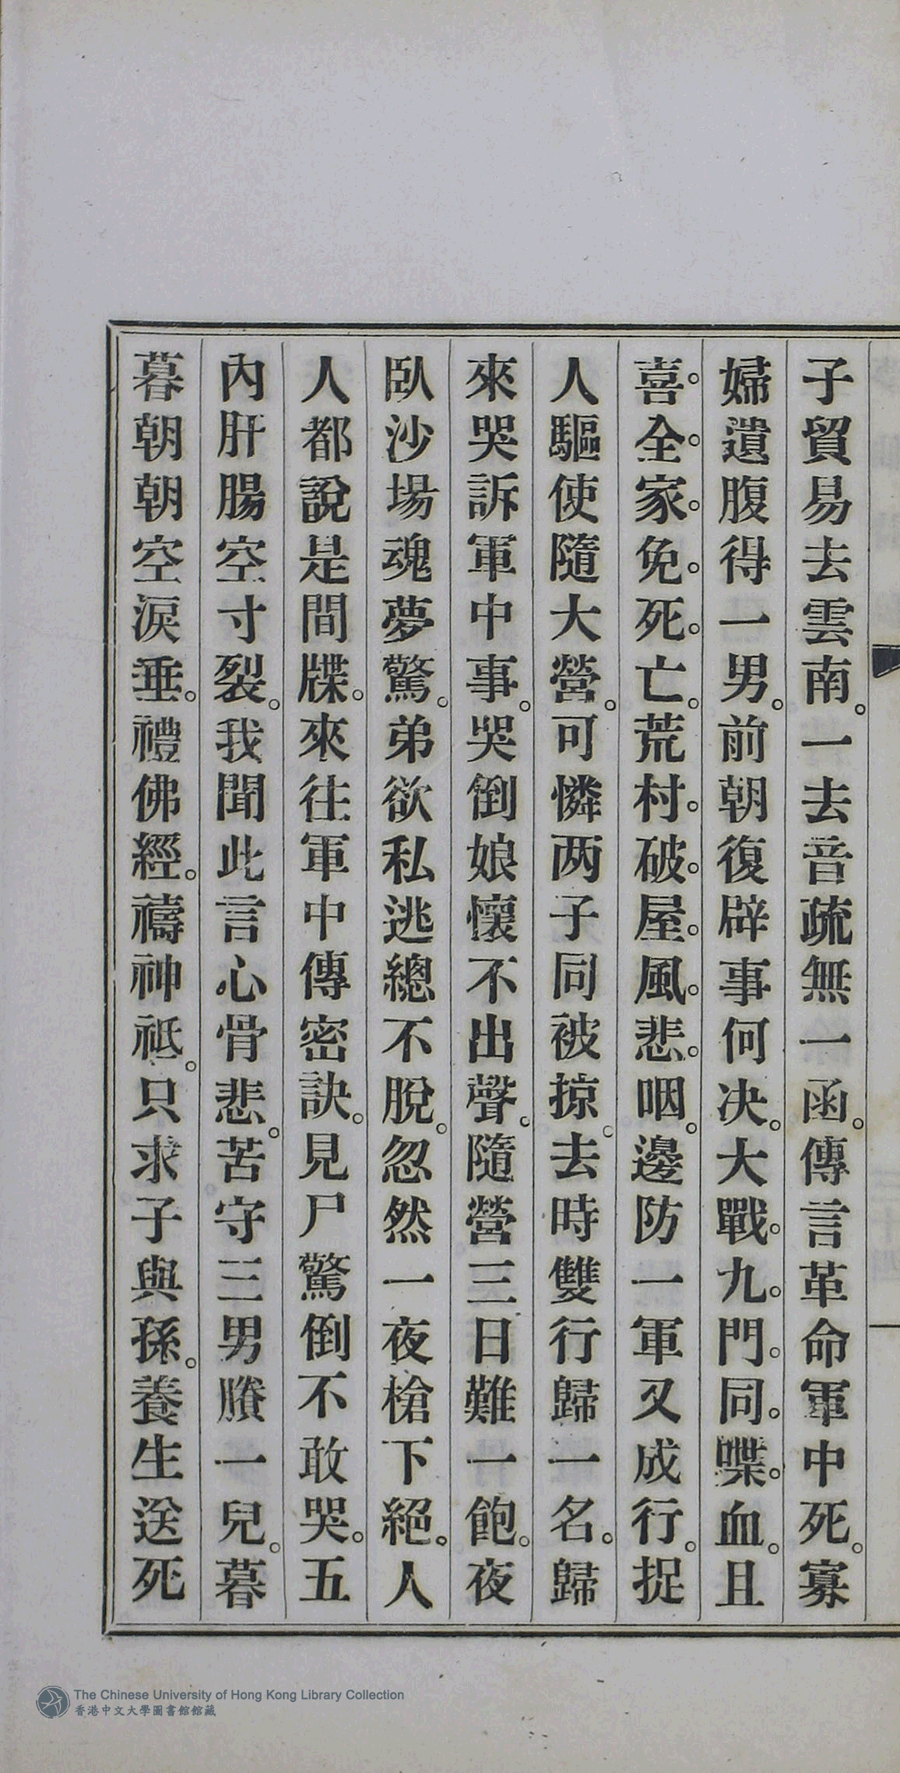 子貿易去雲南。一去音疏無一函。傳言革命軍中死。寡
婦遺腹得一男。前朝復辟事何决。大戰。九。門。同。喋。血。且
喜。全。家。免。死。亡。荒村。破。屋。風。悲。咽。邊防一軍又成行。捉
人驅使隨大營。可憐两子同被掠。去時雙行歸一名。歸
來哭訴軍中事。哭倒娘懷不出聲。隨營三日難一飽。夜
臥沙場魂夢驚。弟欲私逃總不脫。忽然一夜槍下絕。人
人都說是間牒。來往軍中傳密訣。見尸驚倒不敢哭。五
內肝腸空寸裂。我聞此言心骨悲。苦守三男賸一兒。暮
暮朝朝空淚垂。禮佛經。禱神祗。只求子與孫。養生送死
The Chinese University of Hong Kong Library Collection
香港中文大學圖書館館藏